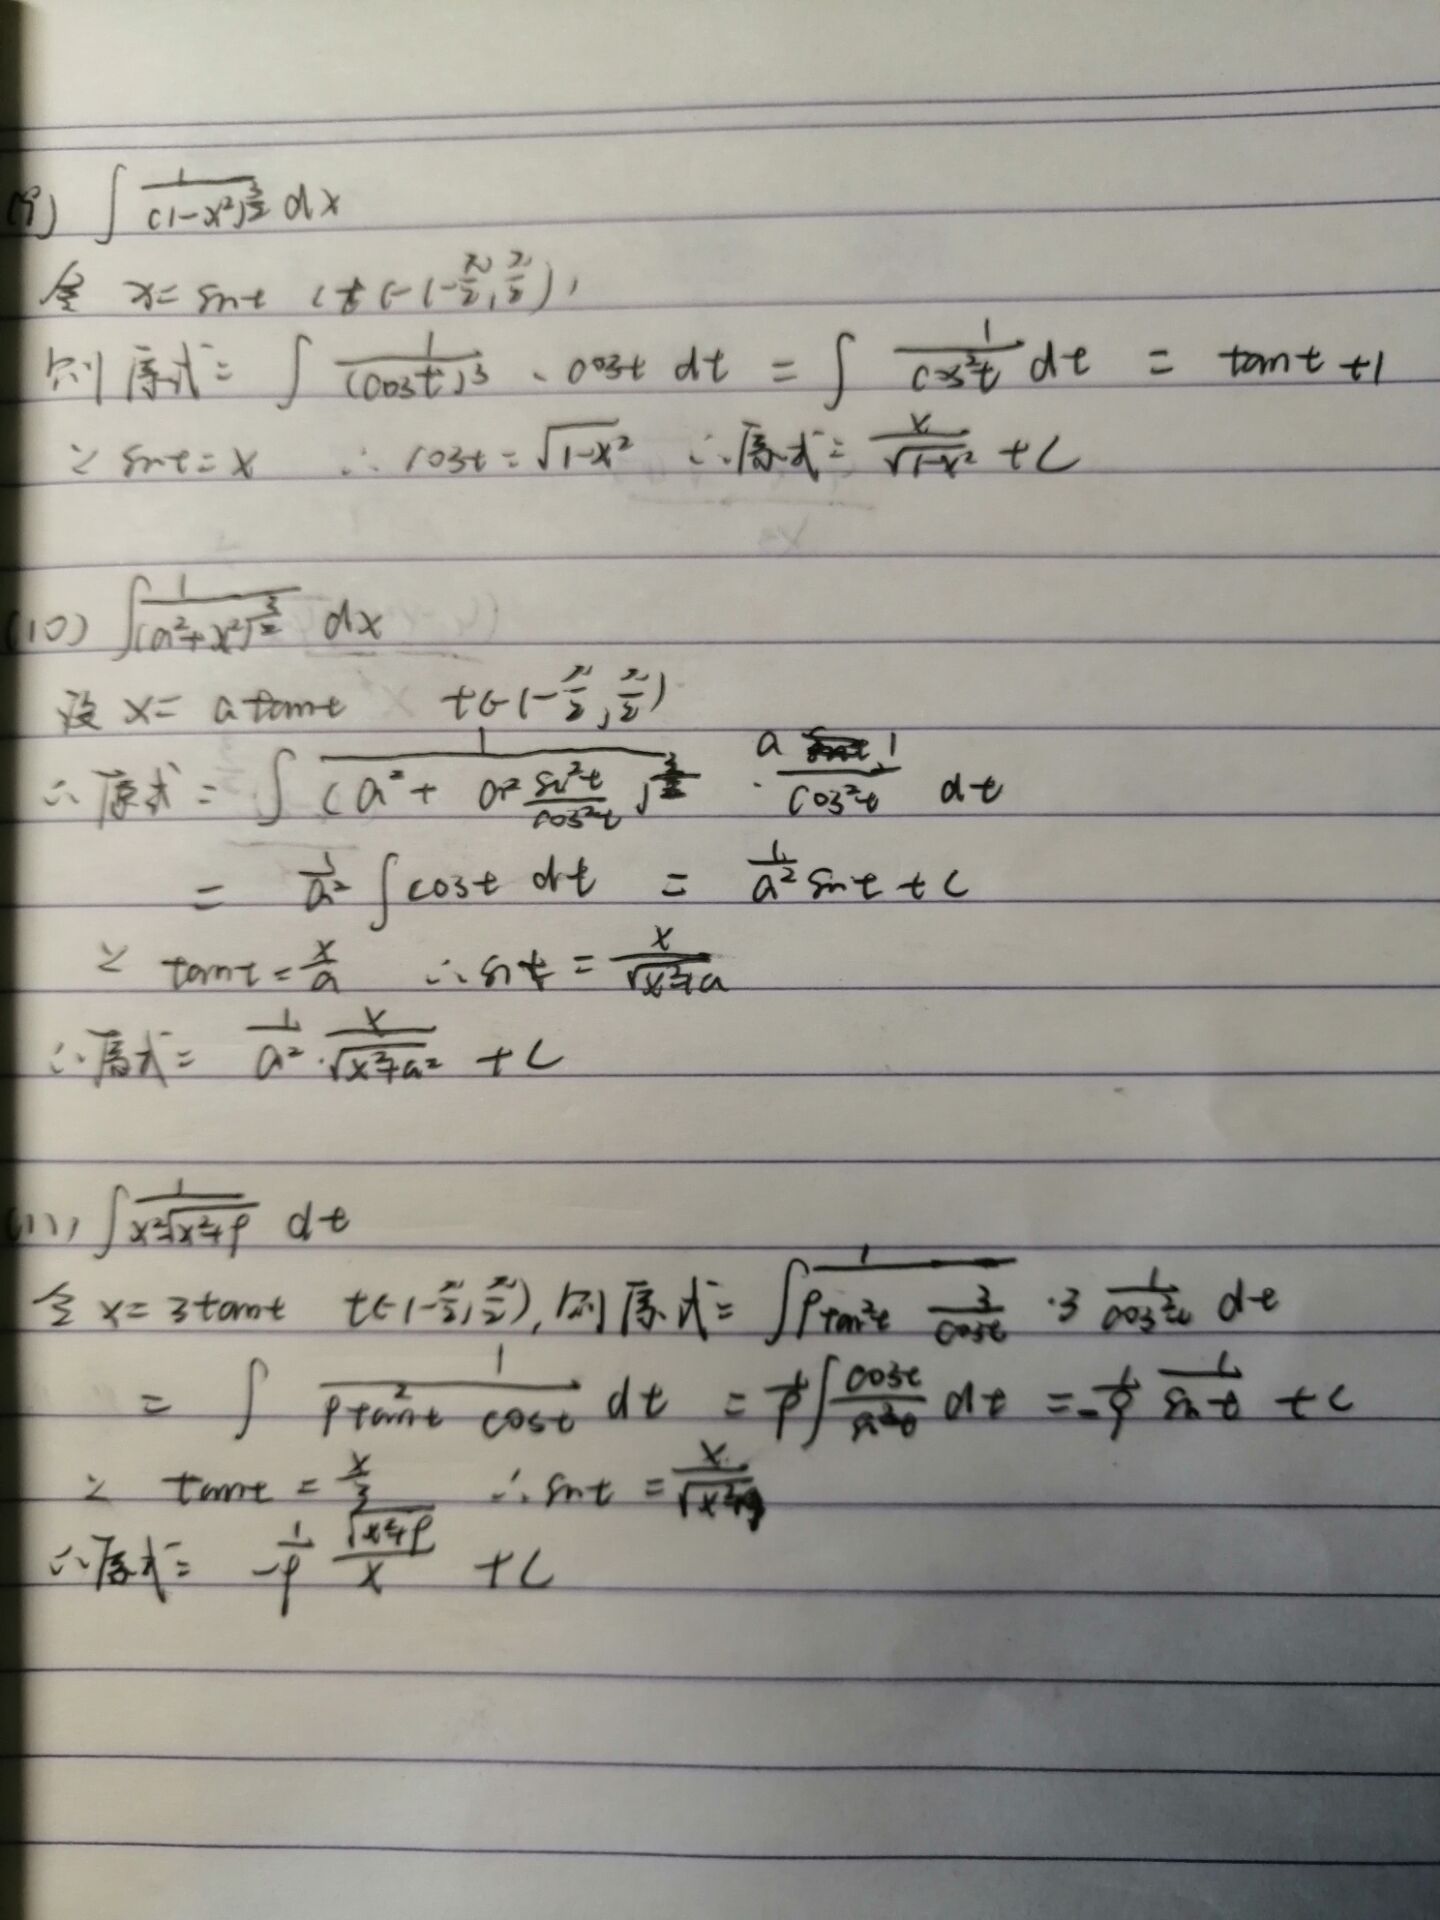 (9) ∫ 1/(1-x²)^(3/2) dx
令 x = sint (t∈(-π/2, π/2)),
则原式 = ∫ 1/(cost)³ · cost dt = ∫ 1/cos²t dt = tant +1
∵ sint = x ∴ cost = √(1-x²) ∴原式 = x/√(1-x²) + C
(10) ∫ 1/(a²+x²)^(3/2) dx
设 x = a tant t∈(-π/2, π/2)
∴原式 = ∫ 1/(a² + a² sin²t/cos²t)^(3/2) · a 1/cos²t dt
= 1/a² ∫ cost dt = 1/a² sint + C
∵ tant = x/a ∴ sint = x/√(x²+a)
∴原式 = 1/a² · x/√(x²+a²) + C
(11) ∫ 1/(x²√(x²+9)) dt
令 x = 3tant t∈(-π/2, π/2), 则原式 = ∫ 1/(9tan²t 3/cost) · 3 1/cos²t dt
= ∫ 1/(9tan²t cost) dt = 1/9 ∫ cost/sin²t dt = -1/9 1/sint + C
∵ tant = x/3 ∴ sint = x/√(x²+9)
∴原式 = -1/9 √(x²+9)/x + C